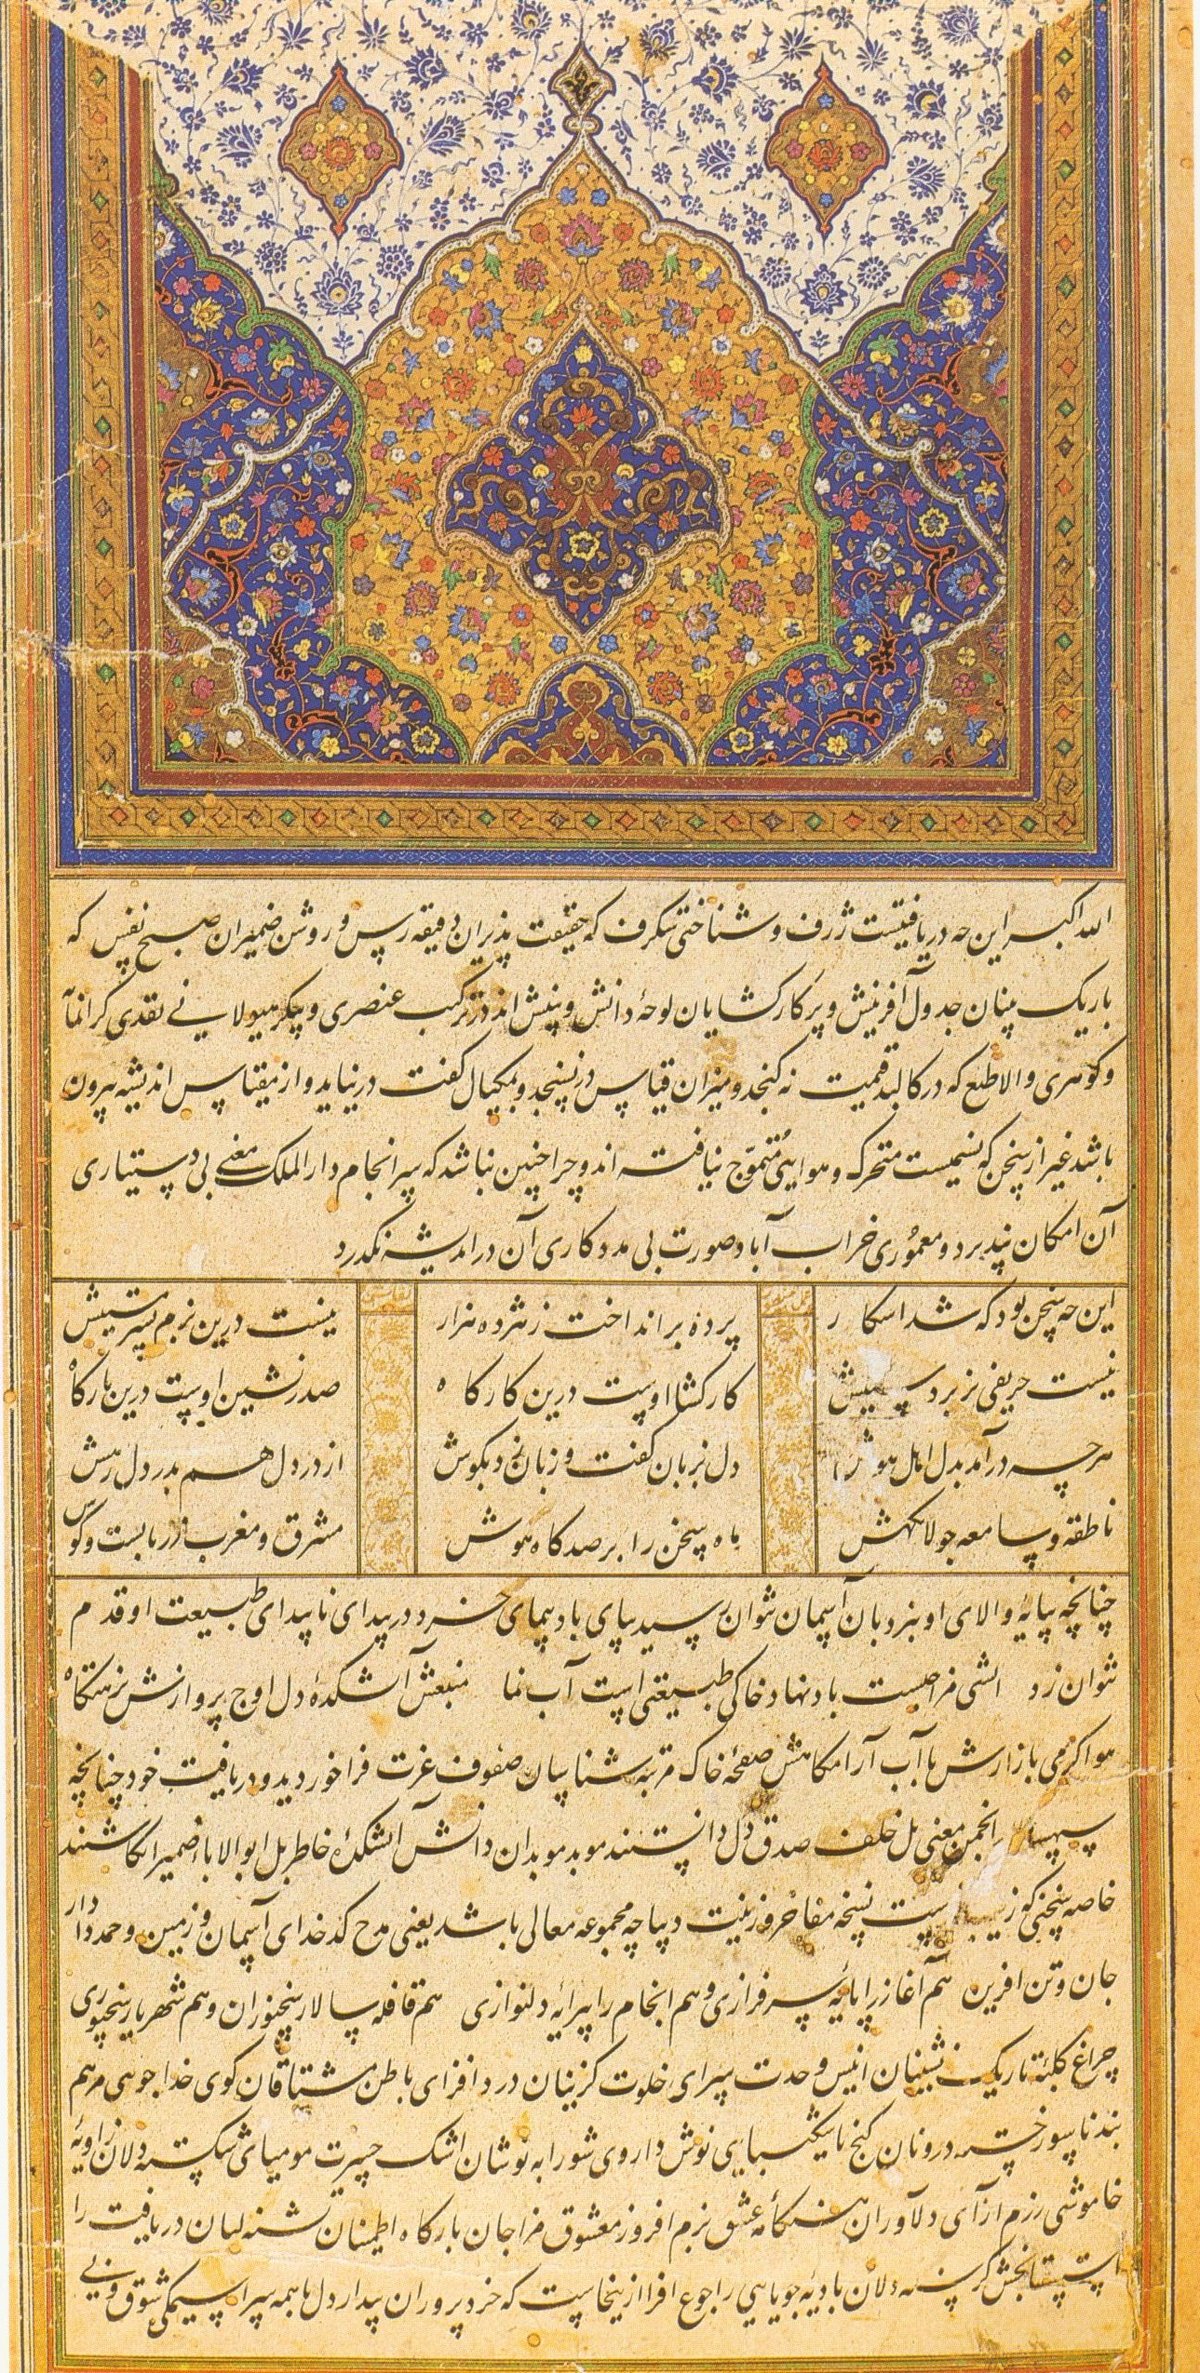 الله اکبر این چه دریافتیست ژرف و شناختی شکرف که حقیقت پذیران دقیقه رس و روشن ضمیران صبح نفس که
باریک بینان جدول آفرینش و پرکار کشایان لوحهٔ دانش و بینش اند در ترکیب عنصری و پیکر هیولانی نقدی کرانمآ
و کوهری والا طبع که در کالبد قیمت نه کنجد و میزان قیاس درنسنجد و بمکیال کفت درنیاید و از مقیاس اندیشه بیرون
باشد غیر از سخن که نسیمیست متحرک و هوایی مُتموّج نیافته اند و چرا چنین نباشد که سرانجام دارالملک معنی بی دستیاری
آن امکان نپذیرد و معمُوری خراب آباد صورت بی مددکاری آن در اندیشه نکذرد
این چه سخن بود که شد اسکار پرده برانداخت ز هژده هزار نیست درین بزم بسرمستیش
نیست حریفی بزبردستیش کارکشا اوست درین کارکاه صدرنشین اوست درین بارکاه
هرچه درآمد بدل اهل هوش دل بزبان کفت و زبان زد بکوش از در دل هم بدر دل رهش
ناطقه و سامعه جولانکهش راه سخن را برصدکاه هوش مشرق و مغرب ز زبانست و کوش
چنانچه بپایهٔ والای او بنردبان آسمان نتوان رسید بپای بادپیمای خرد در پیدای ناپیدای طبیعت او قدم
نتوان زد اتشی مزاجست بادنهاد خاکی طبیعتی است آب نما منبعش آتشکدهٔ دل اوج پروازش نزهتکاه
هوا کرمی بازارش با آب آرامکاهش صفحهٔ خاک مرتبه شناسان صفوف عزت فراخور دید و دریافت خود چنانچه
سپهسالار انجمن معنی بل خلف صدق دل دانستند موبد موبدان دانش آتشکدهٔ خاطر بل ابوالاباء ضمیر انکاشتند
خاصه سخنی که زیب فهرست نسخه مفاخر و زینت دیباچه مجموعه معالی باشد یعنی مدح کدخدای آسمان و زمین و حمد دادار
جان و تن افرین هم آغاز را پایهٔ سرفرازی و هم انجام را پیرایه دلنوازی هم قافله سالار سخنوران و هم شهریار سخنوری
چراغ کلبهٔ تاریک نشینان انیس وحدت سرای خلوت کزینان درد افزای باطن مشتاقان کوی خداجوهی مرهم
بند ناسور خسته درونان کنج ناشکیبایی نوش داروی شورابه نوشان اشک حسرت مومیای شکسته دلان زاویه
خاموشی رزم آرای دلاوران هنکامه عشق بزم افروز معشوق مزاجان بارکاه اطمینان تشنه لبان دریافت را
است بخش کرسنه دلان بادیهٔ جویایی را جوع افزا ازینجاست که خردپروران بیداردل با همه سراسیمکی شوق و بی